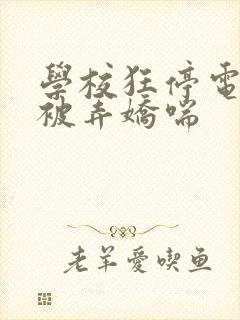 學校狂停電
被弄嬌喘
老羊愛喫鱼